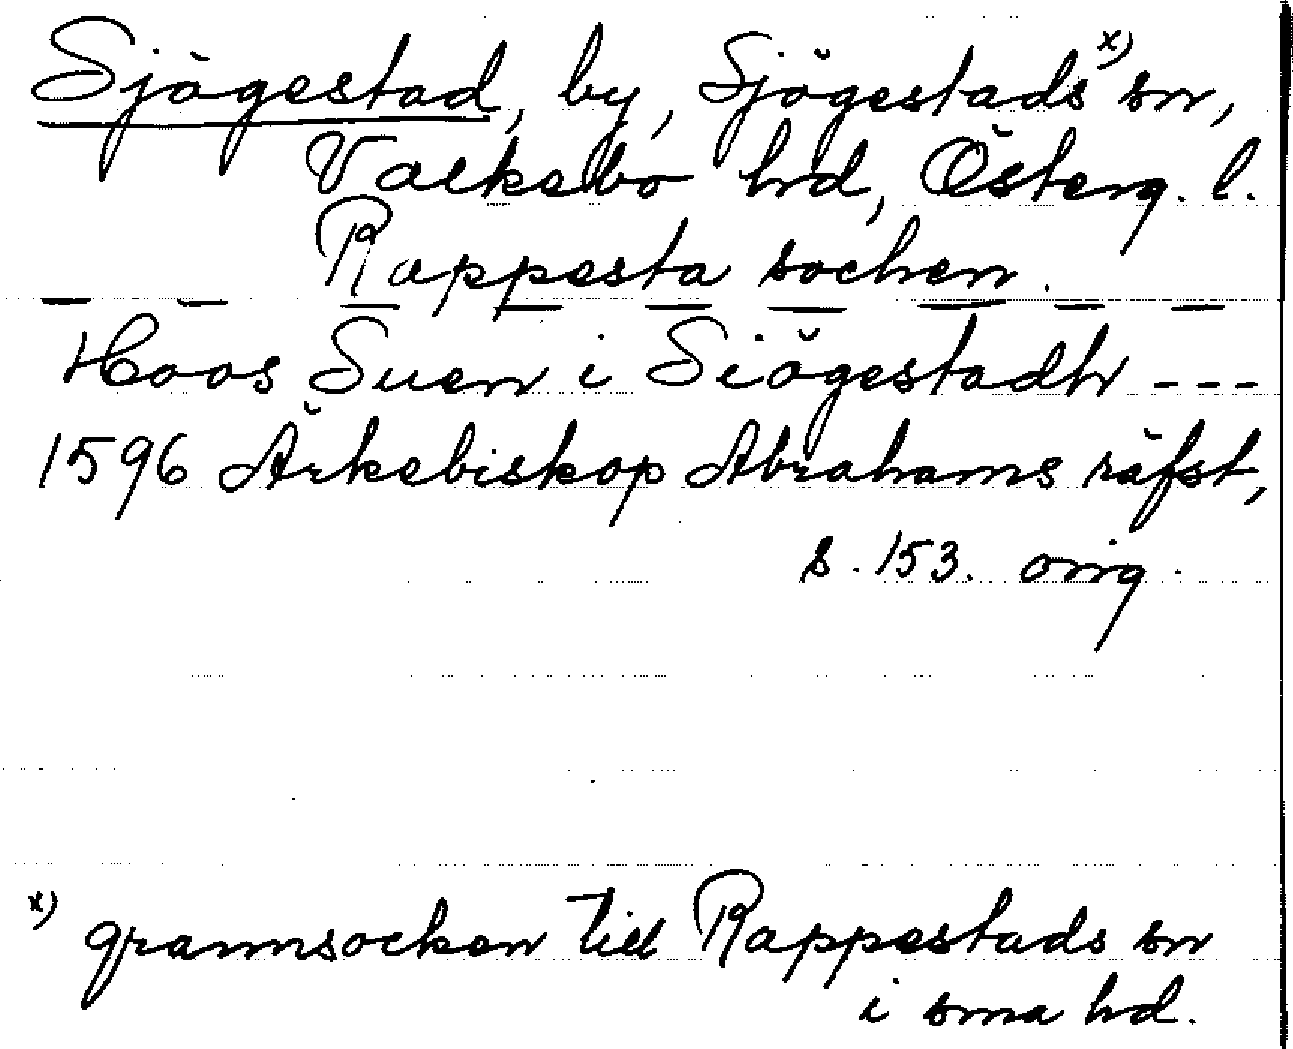 Sjögestad, by, Sjögestads x) sn,
Valkebo hd, Österg. l.
Rappesta sochen.
— — — — — — — — —
Hoos Suen i Siögestadh ---
1596 Ärkebiskop Abrahams räfst,
s. 153. orig.
x) grannsocken till Rappestads sn
i sma hd.